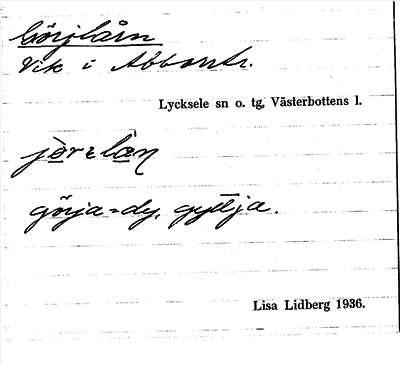 Görjlån
Vik i Abborrtr.
Lycksele sn o. tg, Västerbottens l.
görja = dy, gyttja.
Lisa Lidberg 1936.